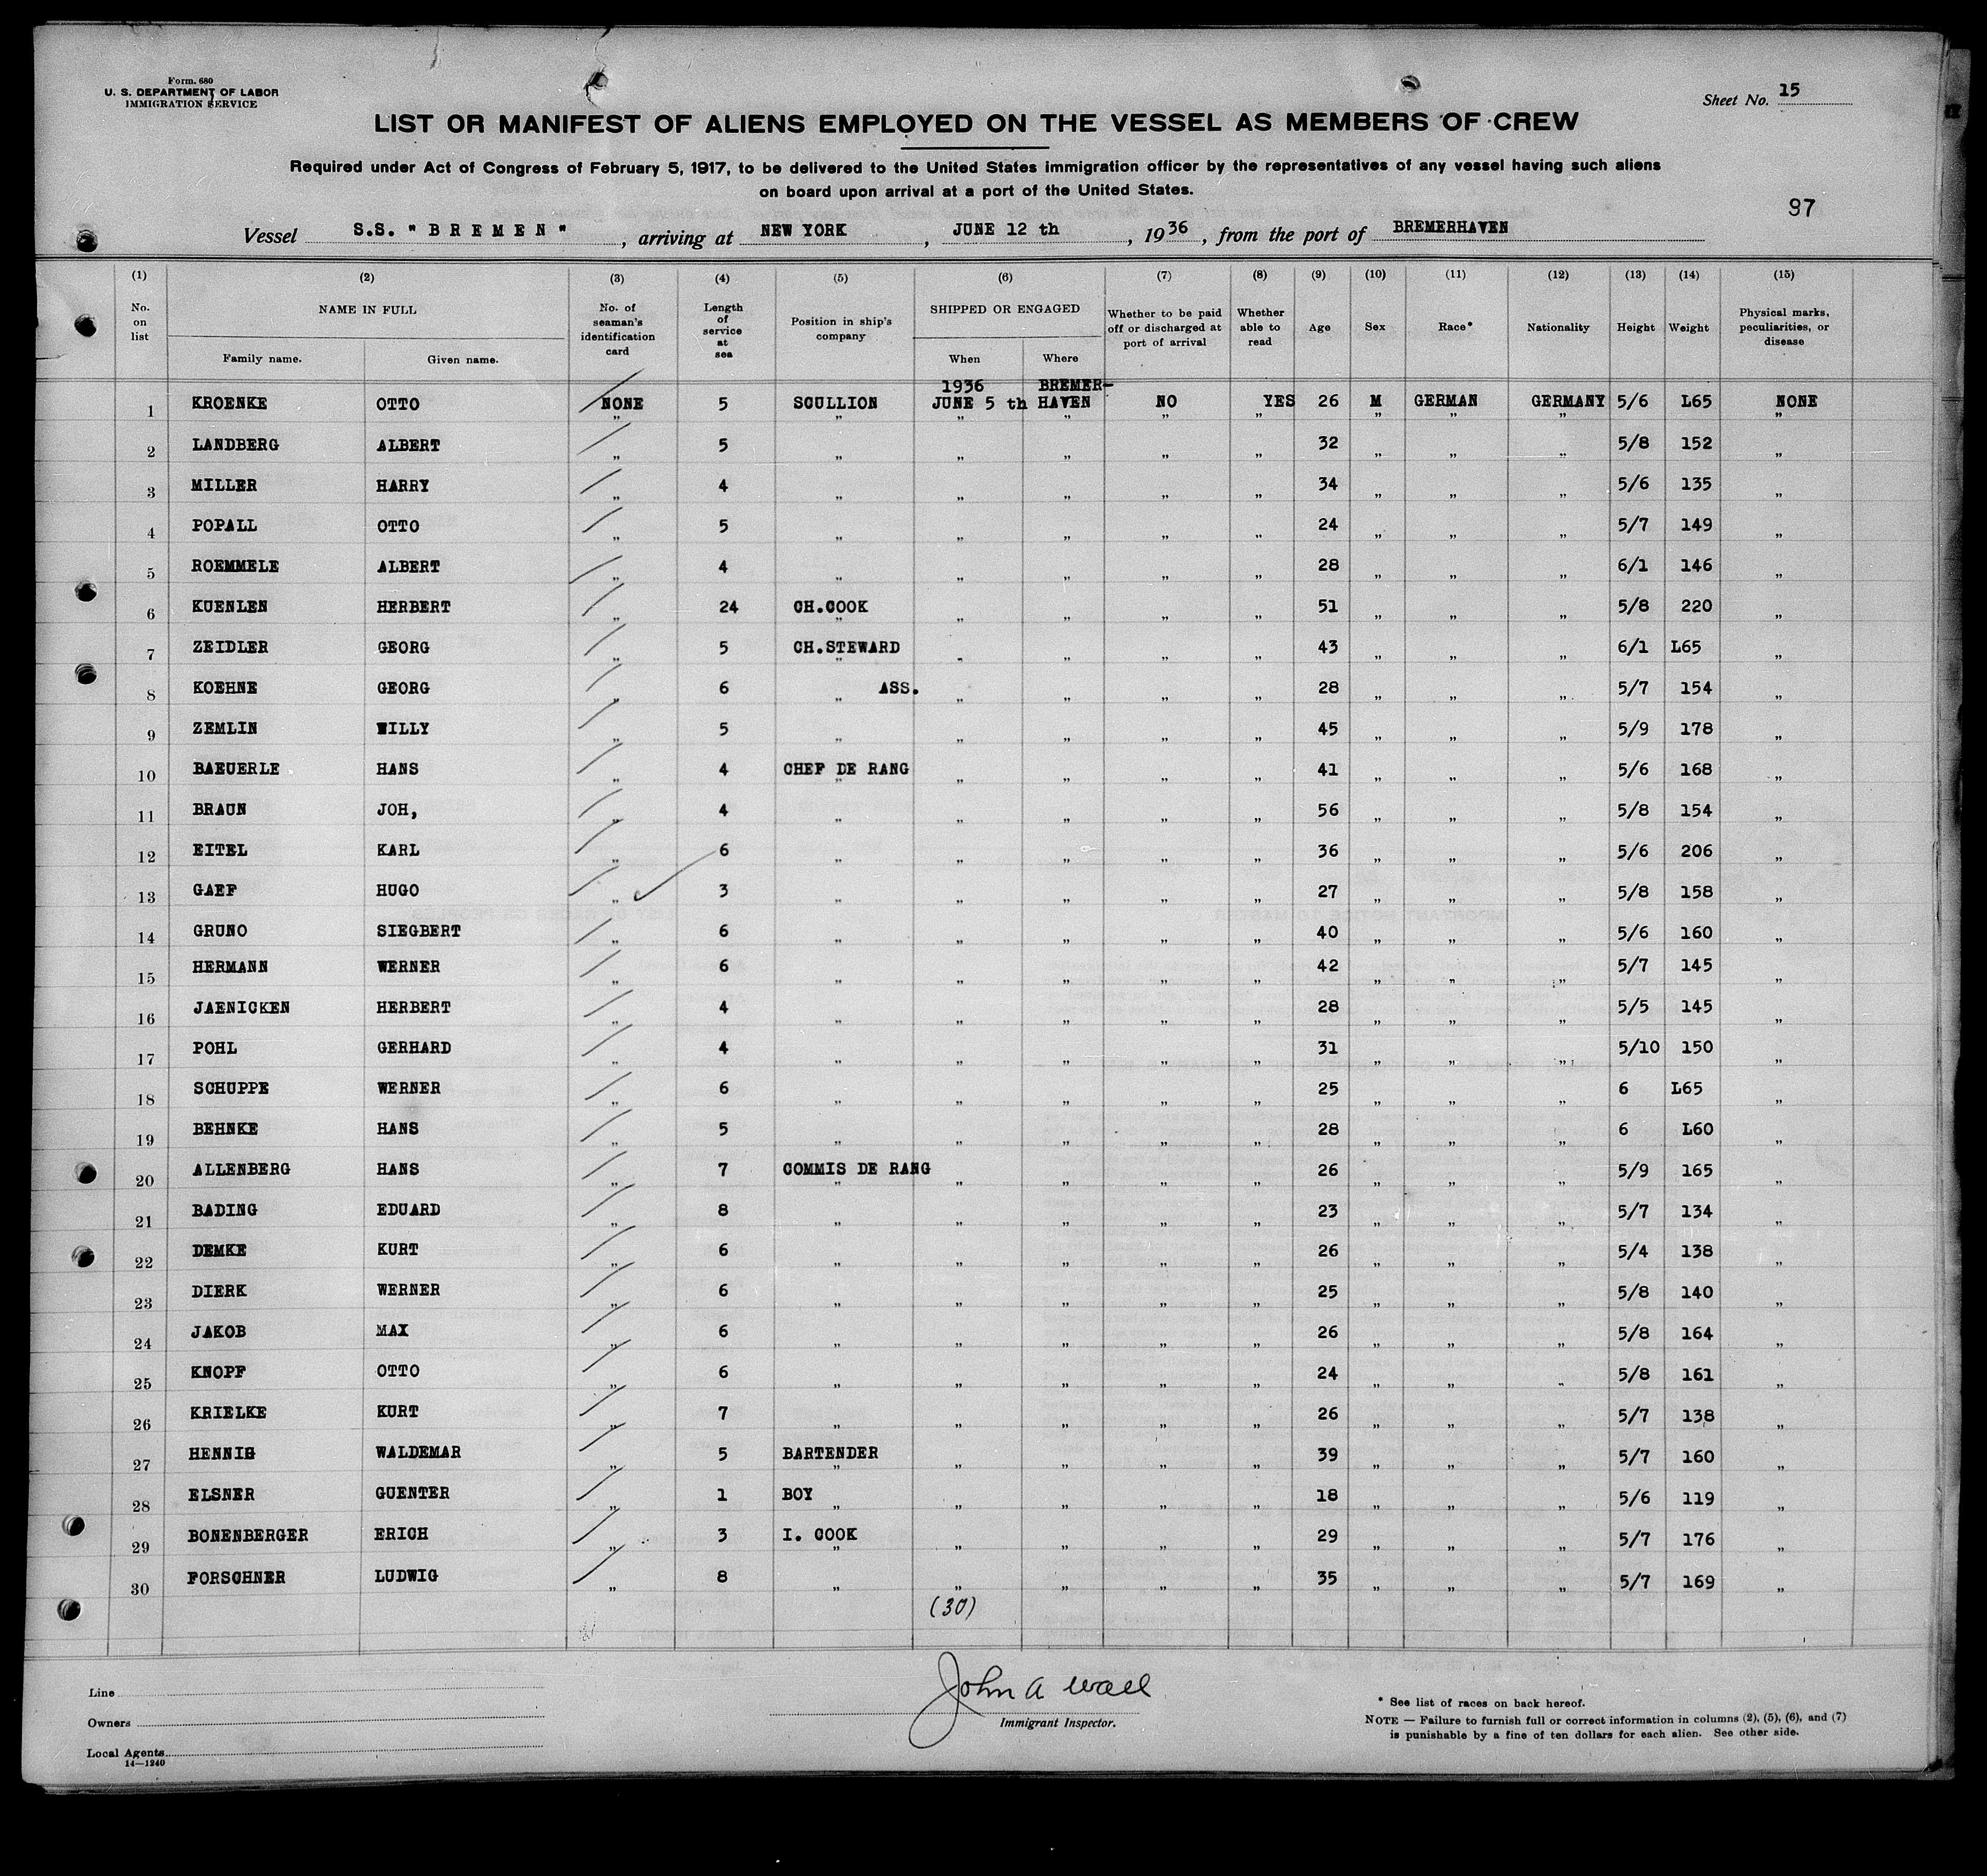 Form. 680
U. S. DEPARTMENT OF LABOR
IMMIGRATION SERVICE
Sheet No. 15
LIST OR MANIFEST OF ALIENS EMPLOYED ON THE VESSEL AS MEMBERS OF CREW
Required under Act of Congress of February 5, 1917, to be delivered to the United States immigration officer by the representatives of any vessel having such aliens
on board upon arrival at a port of the United States.
97
Vessel S.S. "BREMEN", arriving at NEW YORK, JUNE 12 th, 1936, from the port of BREMERHAVEN
(1) (2) (3) (4) (5) (6) (7) (8) (9) (10) (11) (12) (13) (14) (15)
No. on list NAME IN FULL Family name. Given name. No. of seaman's identification card Length of service at sea Position in ship's company SHIPPED OR ENGAGED When Where Whether to be paid off or discharged at port of arrival Whether able to read Age Sex Race* Nationality Height Weight Physical marks, peculiarities, or disease
1936 BREMER-
1 KROENKE OTTO NONE 5 SCULLION JUNE 5 th HAVEN NO YES 26 M GERMAN GERMANY 5/6 L65 NONE
2 LANDBERG ALBERT " 5 " " " " " 32 " " " 5/8 152 "
3 MILLER HARRY " 4 " " " " " 34 " " " 5/6 135 "
4 POPALL OTTO " 5 " " " " " 24 " " " 5/7 149 "
5 ROEMMELE ALBERT " 4 " " " " " 28 " " " 6/1 146 "
6 KUENLEN HERBERT " 24 CH.COOK " " " " 51 " " " 5/8 220 "
7 ZEIDLER GEORG " 5 CH.STEWARD " " " " 43 " " " 6/1 L65 "
8 KOEHNE GEORG " 6 " ASS. " " " " 28 " " " 5/7 154 "
9 ZEMLIN WILLY " 5 " " " " " 45 " " " 5/9 178 "
10 BAEUERLE HANS " 4 CHEF DE RANG " " " " 41 " " " 5/6 168 "
11 BRAUN JOH, " 4 " " " " " 56 " " " 5/8 154 "
12 EITEL KARL " 6 " " " " " 36 " " " 5/6 206 "
13 GAEF HUGO " 3 " " " " " 27 " " " 5/8 158 "
14 GRUNO SIEGBERT " 6 " " " " " 40 " " " 5/6 160 "
15 HERMANN WERNER " 6 " " " " " 42 " " " 5/7 145 "
16 JAENICKEN HERBERT " 4 " " " " " 28 " " " 5/5 145 "
17 POHL GERHARD " 4 " " " " " 31 " " " 5/10 150 "
18 SCHUPPE WERNER " 6 " " " " " 25 " " " 6 L65 "
19 BEHNKE HANS " 5 " " " " " 28 " " " 6 L60 "
20 ALLENBERG HANS " 7 COMMIS DE RANG " " " " 26 " " " 5/9 165 "
21 BADING EDUARD " 8 " " " " " 23 " " " 5/7 134 "
22 DEMKE KURT " 6 " " " " " 26 " " " 5/4 138 "
23 DIERK WERNER " 6 " " " " " 25 " " " 5/8 140 "
24 JAKOB MAX " 6 " " " " " 26 " " " 5/8 164 "
25 KNOPF OTTO " 6 " " " " " 24 " " " 5/8 161 "
26 KRIELKE KURT " 7 " " " " " 26 " " " 5/7 138 "
27 HENNIG WALDEMAR " 5 BARTENDER " " " " 39 " " " 5/7 160 "
28 ELSNER GUENTER " 1 BOY " " " " 18 " " " 5/6 119 "
29 BONENBERGER ERICH " 3 I. COOK " " " " 29 " " " 5/7 176 "
30 FORSCHNER LUDWIG " 8 " " " " " 35 " " " 5/7 169 "
(30)
Line
Owners
Local Agents
14—1240
John A Wall
Immigrant Inspector.
* See list of races on back hereof.
NOTE — Failure to furnish full or correct information in columns (2), (5), (6), and (7)
is punishable by a fine of ten dollars for each alien. See other side.